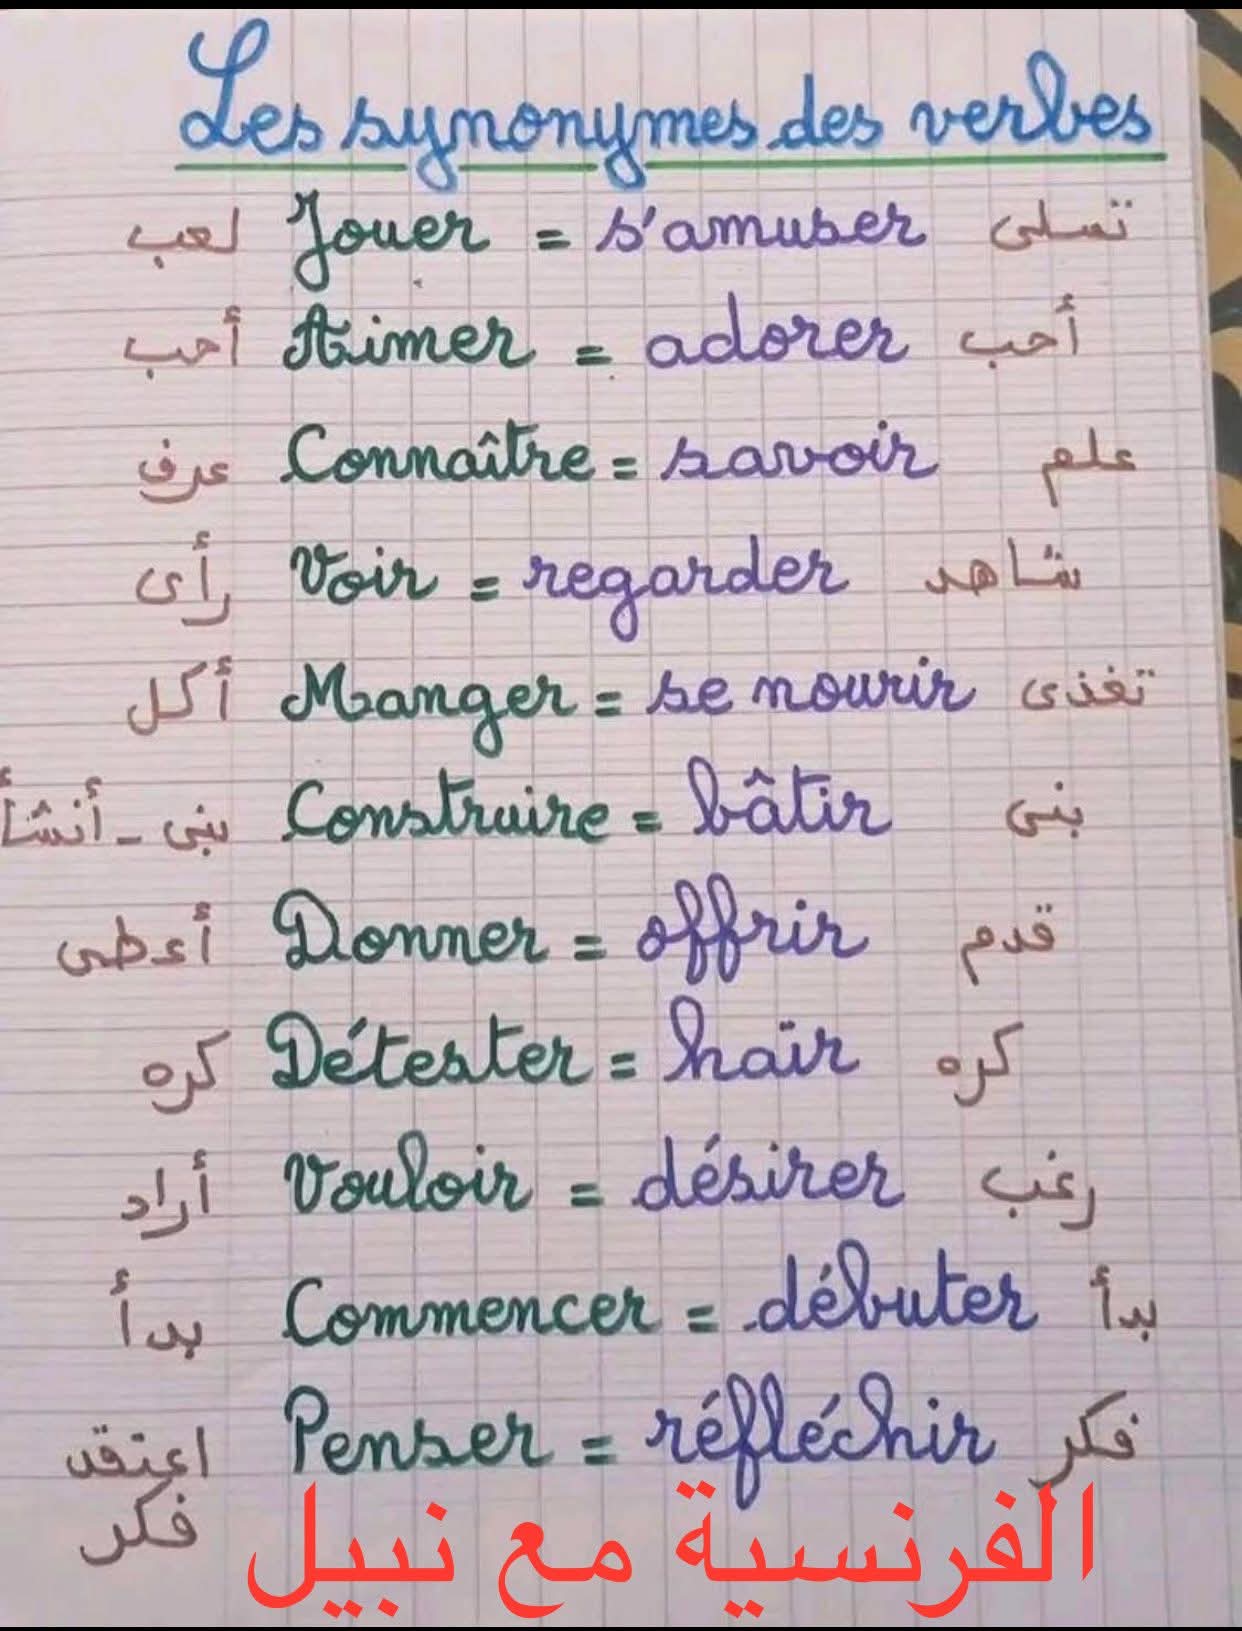 Les synonymes des verbes
لعب Jouer = s'amuser تسلى
أحب Aimer = adorer أحب
عرف Connaître = savoir علم
رأى Voir = regarder شاهد
أكل Manger = se nourir تغذى
بنى - أنشأ Construire = bâtir بنى
أعطى Donner = offrir قدم
كره Détester = haïr كره
أراد Vouloir = désirer رغب
بدأ Commencer = débuter بدأ
اعتقد Penser = réfléchir فكر
فكر
الفرنسية مع نبيل